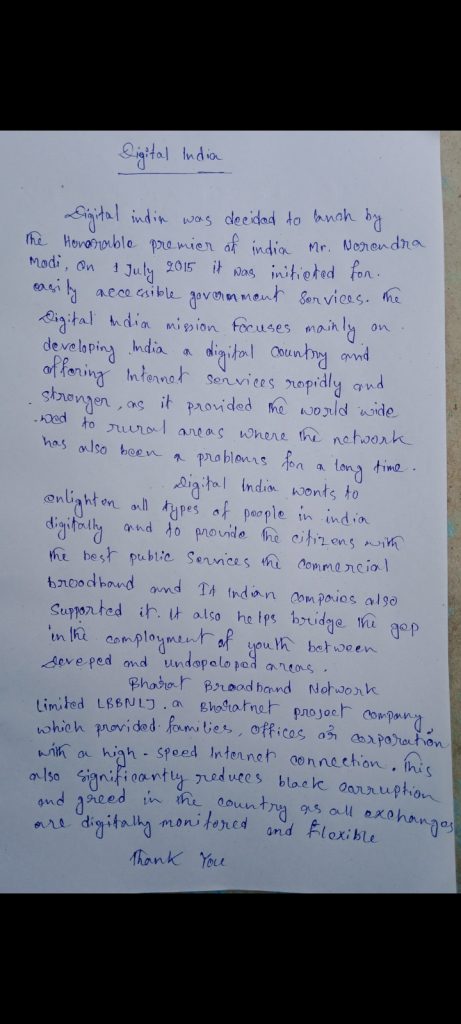 Digital India
Digital india was decided to lanch by
the Honorable premier of india Mr. Narendra
Modi, on 1 July 2015 it was initieted for.
easily accessible government Services. the
Digital India mission focuses mainly on
developing India a digital country and
offering Internet Services rapidly and
stronger, as it provided the world wide
wed to rural areas where the network
has also been a problems for a long time.
Digital India wonts to
enlighten all types of people in india
digitally and to provide the citizens with
the best public Services the commercial
broadband and IA Indian compaies also
Supported it. It also helps bridge the gap
in the employment of youth between
deveped and undopeloped areas.
Bharat Broadband Network
Limited LBBNLJ. a Bharatnet project company
which provided families, offices or corporation
with a high-speed Internet connection. This
also significantly reduces black corruption
and greed in the country as all exchanges
are digitally monitored and flexible
Thank You